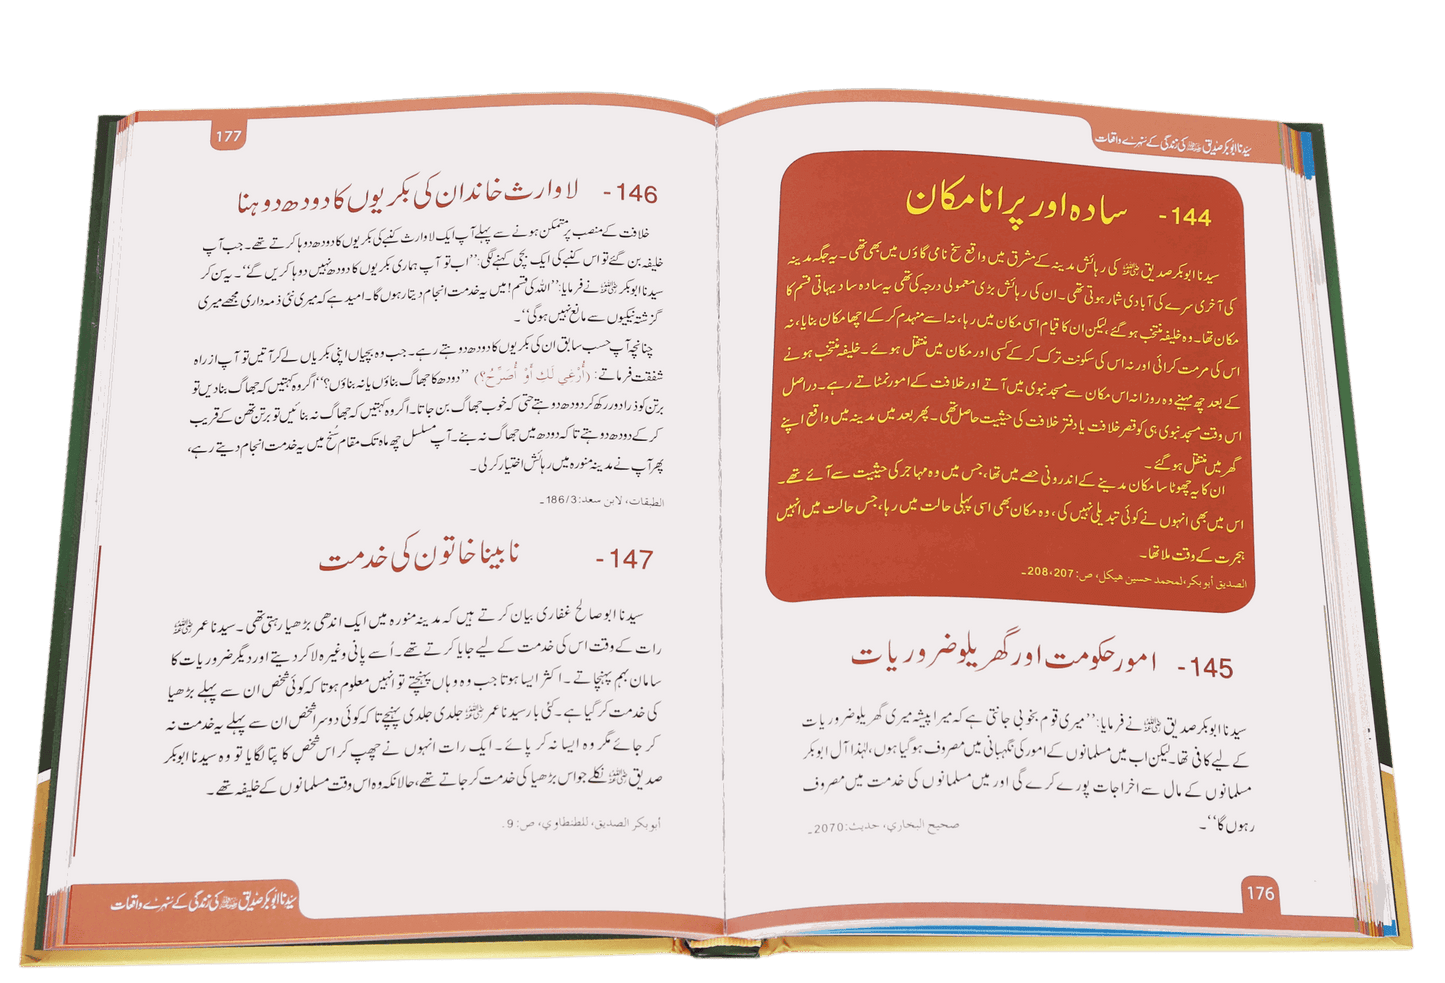 سیدنا ابوبکر صدیق رضی اللہ عنہ کی زندگی کے سنہرے واقعات
144- سادہ اور پرانا مکان
سیدنا ابوبکر صدیق رضی اللہ عنہ کی رہائش مدینہ کے مشرق میں واقع سخ نامی گاؤں میں بھی تھی۔ یہ جگہ مدینہ
کی آخری سرے کی آبادی شمار ہوتی تھی۔ ان کی رہائش بڑی معمولی درجہ کی تھی یہ سادہ سا دیہاتی قسم کا
مکان تھا۔ وہ خلیفہ منتخب ہو گئے لیکن ان کا قیام اسی مکان میں رہا، نہ اسے منہدم کر کے اچھا مکان بنایا، نہ
اس کی مرمت کرائی اور نہ اس کی سکونت ترک کر کے کسی اور مکان میں منتقل ہوئے۔ خلیفہ منتخب ہونے
کے بعد چھ مہینے وہ روزانہ اس مکان سے مسجد نبوی میں آتے اور خلافت کے امور نمٹاتے رہے۔ دراصل
اس وقت مسجد نبوی ہی کو قصر خلافت یا دفتر خلافت کی حیثیت حاصل تھی۔ پھر بعد میں مدینہ میں واقع اپنے
گھر میں منتقل ہو گئے۔
ان کا یہ چھوٹا سا مکان مدینے کے اندرونی حصے میں تھا، جس میں وہ مہاجر کی حیثیت سے آئے تھے۔
اس میں بھی انہوں نے کوئی تبدیلی نہیں کی، وہ مکان بھی اسی پہلی حالت میں رہا، جس حالت میں انہیں
ہجرت کے وقت ملا تھا۔
الصدیق أبوبکر، لمحمد حسین ھیکل، ص: 207، 208۔
145- امور حکومت اور گھریلو ضروریات
سیدنا ابوبکر صدیق رضی اللہ عنہ نے فرمایا: ’’میری قوم بخوبی جانتی ہے کہ میرا پیشہ میری گھریلو ضروریات
کے لیے کافی تھا۔ لیکن اب میں مسلمانوں کے امور کی نگہبانی میں مصروف ہو گیا ہوں، لہٰذا آل ابوبکر
مسلمانوں کے مال سے اخراجات پورے کرے گی اور میں مسلمانوں کی خدمت میں مصروف
رہوں گا‘‘۔
صحیح البخاري، حدیث: 2070۔
176
177
146- لاوارث خاندان کی بکریوں کا دودھ دوہنا
خلافت کے منصب پر متمکن ہونے سے پہلے آپ ایک لاوارث کنبے کی بکریوں کا دودھ دوہا کرتے تھے۔ جب آپ
خلیفہ بن گئے تو اس کنبے کی ایک بچی کہنے لگی: ’’اب تو آپ ہماری بکریوں کا دودھ نہیں دوہا کریں گے‘‘۔ یہ سن کر
سیدنا ابوبکر رضی اللہ عنہ نے فرمایا: ’’اللہ کی قسم! میں یہ خدمت انجام دیتا رہوں گا۔ امید ہے کہ میری نئی ذمہ داری مجھے میری
گزشتہ نیکیوں سے مانع نہیں ہوگی‘‘۔
چنانچہ آپ حسب سابق ان کی بکریوں کا دودھ دوہتے رہے۔ جب وہ بچیاں اپنی بکریاں لے کر آتیں تو آپ ازراہ
شفقت فرماتے: (أُرْغِي لَكِ أَوْ أُصَرِّحُ؟) ’’دودھ کا جھاگ بناؤں یا نہ بناؤں؟‘‘ اگر وہ کہتیں کہ جھاگ بنا دیں تو
برتن کو ذرا دور رکھ کر دودھ دوہتے حتی کہ خوب جھاگ بن جاتا۔ اگر وہ کہتیں کہ جھاگ نہ بنائیں تو برتن تھن کے قریب
کر کے دودھ دوہتے تاکہ دودھ میں جھاگ نہ بنے۔ آپ مسلسل چھ ماہ تک مقام سُخ میں یہ خدمت انجام دیتے رہے،
پھر آپ نے مدینہ منورہ میں رہائش اختیار کر لی۔
الطبقات، لابن سعد: 186/3۔
147- نابینا خاتون کی خدمت
سیدنا ابو صالح غفاری بیان کرتے ہیں کہ مدینہ منورہ میں ایک اندھی بڑھیا رہتی تھی۔ سیدنا عمر رضی اللہ عنہ
رات کے وقت اس کی خدمت کے لیے جایا کرتے تھے۔ اُسے پانی وغیرہ لا کر دیتے اور دیگر ضروریات کا
سامان بہم پہنچاتے۔ اکثر ایسا ہوتا جب وہ وہاں پہنچتے تو انہیں معلوم ہوتا کہ کوئی شخص ان سے پہلے بڑھیا
کی خدمت کر گیا ہے۔ کئی بار سیدنا عمر رضی اللہ عنہ جلدی جلدی پہنچے تاکہ کوئی دوسرا شخص ان سے پہلے یہ خدمت نہ
کر جائے مگر وہ ایسا نہ کر پائے۔ ایک رات انہوں نے چھپ کر اس شخص کا پتا لگایا تو وہ سیدنا ابوبکر
صدیق رضی اللہ عنہ نکلے جو اس بڑھیا کی خدمت کر جاتے تھے، حالانکہ وہ اس وقت مسلمانوں کے خلیفہ تھے۔
أبوبکر الصدیق، للطنطاوي، ص: 9۔
سیدنا ابوبکر صدیق رضی اللہ عنہ کی زندگی کے سنہرے واقعات